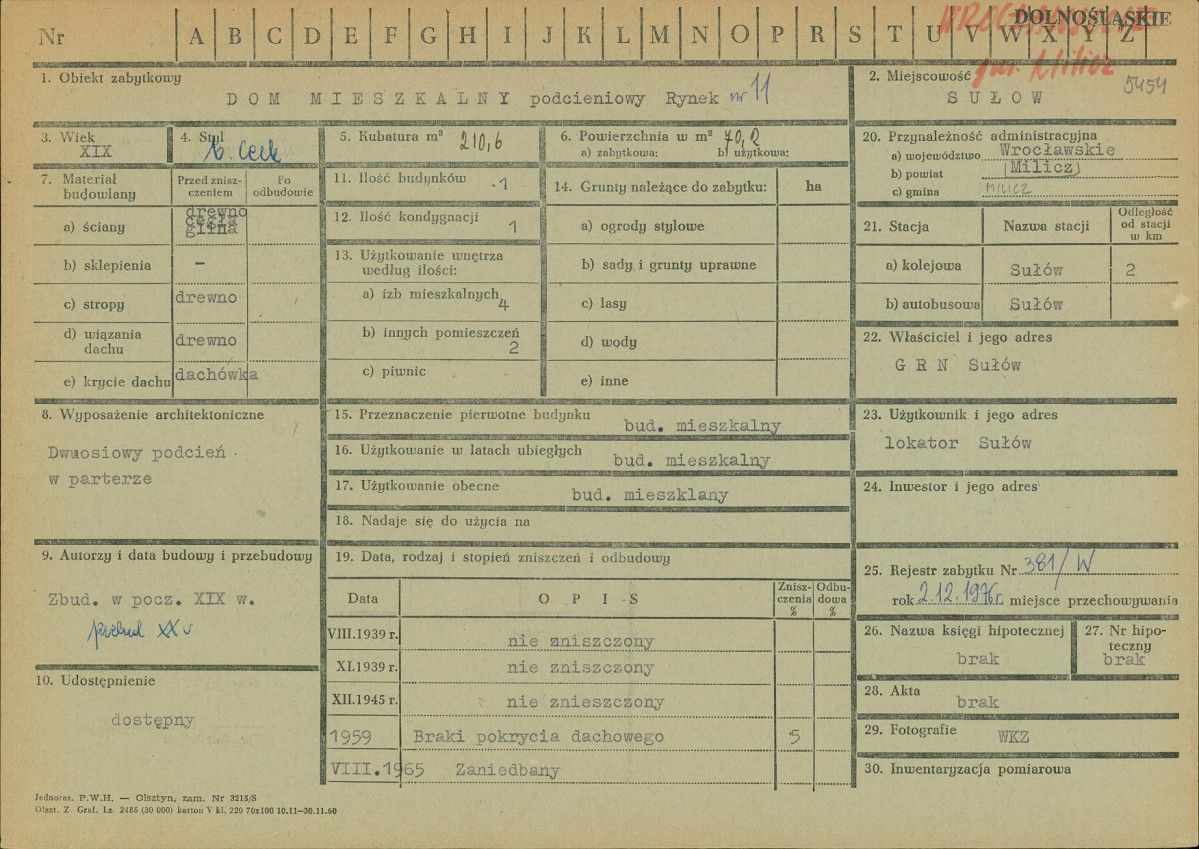 Nr A B C D E F G H I J K L M N O P R S T U V W X Y Z
DOLNOŚLĄSKIE
gm. Milicz
5454
1. Obiekt zabytkowy
DOM MIESZKALNY podcieniowy Rynek nr 11
2. Miejscowość
SUŁÓW
3. Wiek
XIX
4. Styl
5. Kubatura m³ 210,6
6. Powierzchnia w m² 70,2
a) zabytkowa: b) użytkowa:
20. Przynależność administracyjna
a) województwo Wrocławskie
b) powiat (Milicz)
c) gmina MILICZ
7. Materiał budowlany
Przed zniszczeniem
Po odbudowie
a) ściany
drewno
cegła
glina
b) sklepienia –
c) stropy drewno
d) wiązania dachu drewno
e) krycie dachu dachówka
11. Ilość budynków 1
12. Ilość kondygnacji 1
13. Użytkowanie wnętrza według ilości:
a) izb mieszkalnych 4
b) innych pomieszczeń 2
c) piwnic
14. Grunty należące do zabytku: ha
a) ogrody stylowe
b) sady i grunty uprawne
c) lasy
d) wody
e) inne
21. Stacja Nazwa stacji Odległość od stacji w km
a) kolejowa Sułów 2
b) autobusowa Sułów
22. Właściciel i jego adres
G R N Sułów
8. Wyposażenie architektoniczne
Dwuosiowy podcień
w parterze
15. Przeznaczenie pierwotne budynku
bud. mieszkalny
16. Użytkowanie w latach ubiegłych
bud. mieszkalny
17. Użytkowanie obecne
bud. mieszklany
18. Nadaje się do użycia na
23. Użytkownik i jego adres
lokator Sułów
24. Inwestor i jego adres
9. Autorzy i data budowy i przebudowy
Zbud. w pocz. XIX w.
przebud XX w
10. Udostępnienie
dostępny
19. Data, rodzaj i stopień zniszczeń i odbudowy
Data OPIS Zniszczenia % Odbudowa %
VIII.1939 r. nie zniszczony
XI.1939 r. nie zniszczony
XII.1945 r. nie znieszczony
1959 Braki pokrycia dachowego 5
VIII.1965 Zaniedbany
25. Rejestr zabytku Nr 381/W
rok 2.12.1976r. miejsce przechowywania
26. Nazwa księgi hipotecznej
brak
27. Nr hipoteczny
brak
28. Akta
brak
29. Fotografie
WKZ
30. Inwentaryzacja pomiarowa
Jednoraz. P.W.H. — Olsztyn, zam. Nr 3215/S
Olszt. Z. Graf. Lz. 2485 (30 000) karton V kl. 220 70x100 10.11—30.11.60